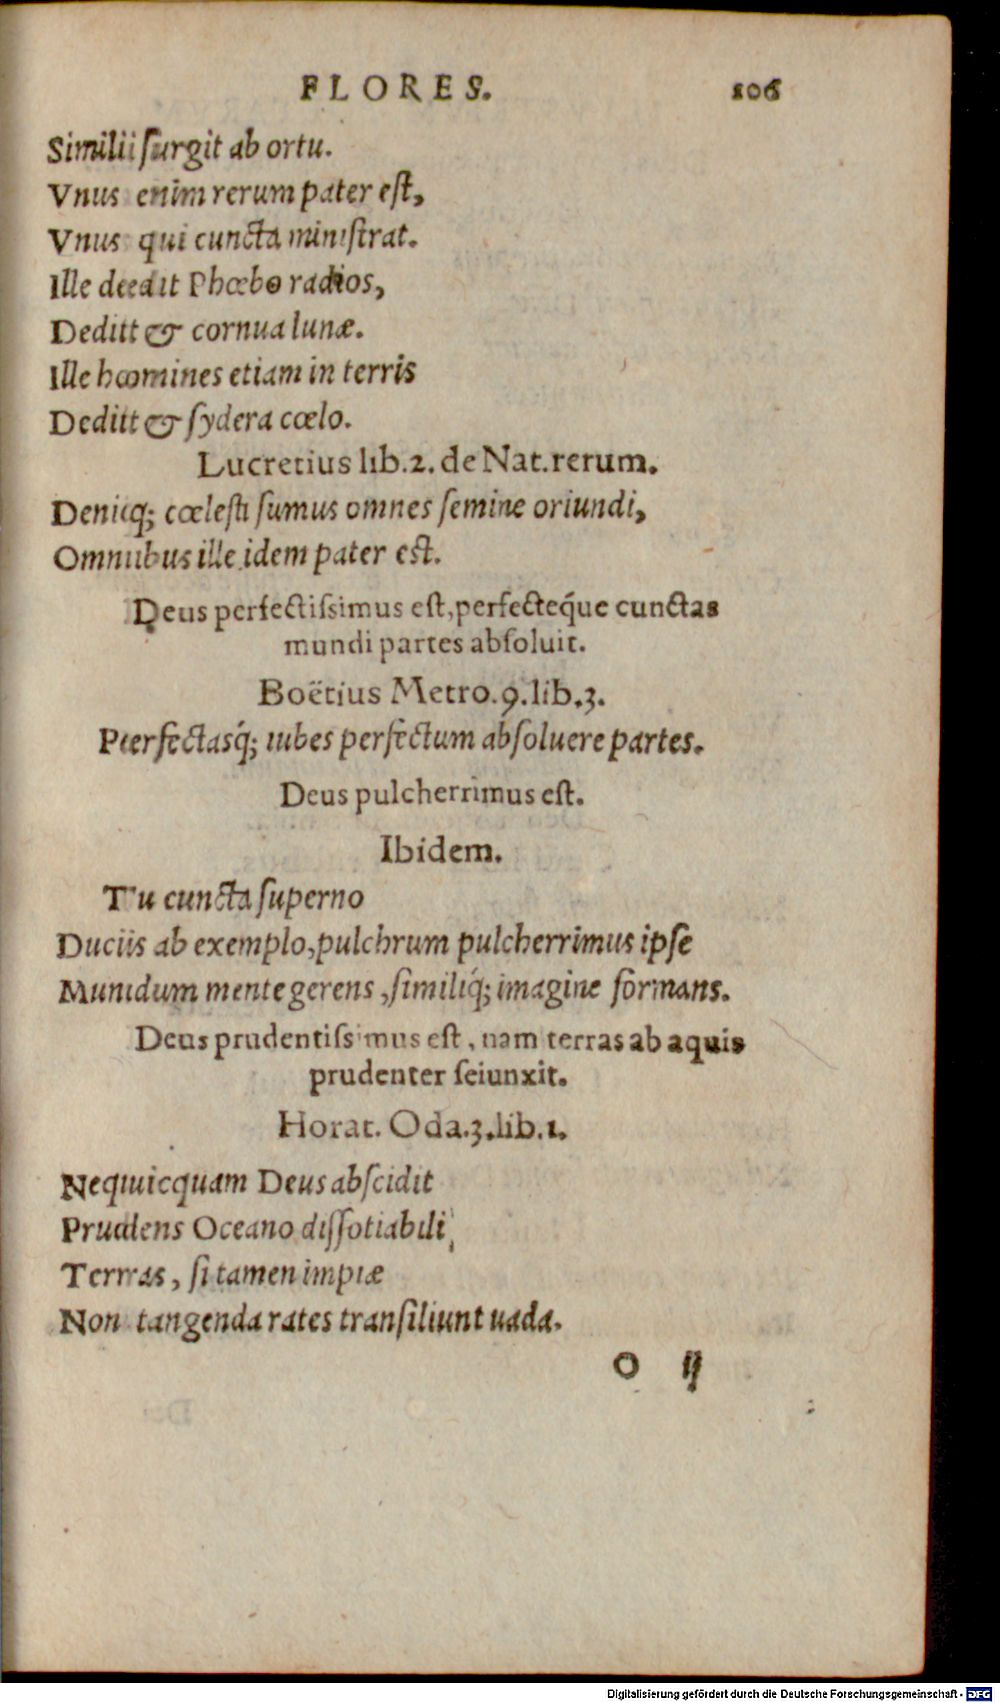 FLORES. 106
Similii ſurgit ab ortu.
Vnus enim rerum pater eſt,
Vnus qui cuncta miniſtrat.
Ille deedit Phœbo radios,
Deditt & cornua lunæ.
Ille hoomines etiam in terris
Deditt & ſydera cœlo.
Lucretius lib.2. de Nat.rerum.
Deniq; cœleſti ſumus omnes ſemine oriundi,
Omnibus ille idem pater eſt.
Deus perfectiſsimus eſt,perfecteq́ue cunctas
mundi partes abſoluit.
Boëtius Metro.9.lib.3.
Peerfectasq́; iubes perfectum abſoluere partes.
Deus pulcherrimus eſt.
Ibidem.
Tu cuncta ſuperno
Duciis ab exemplo,pulchrum pulcherrimus ipſe
Munidum mente gerens,ſimiliq́; imagine formans.
Deus prudentiſsimus eſt, nam terras ab aquis
prudenter ſeiunxit.
Horat. Oda.3.lib.1.
Nequiicquam Deus abſcidit
Prudens Oceano diſſotiabili,
Terras, ſi tamen impiæ
Non tangenda rates tranſiliunt uada.
O ij
Digitalisierung gefördert durch die Deutsche Forschungsgemeinschaft - DFG